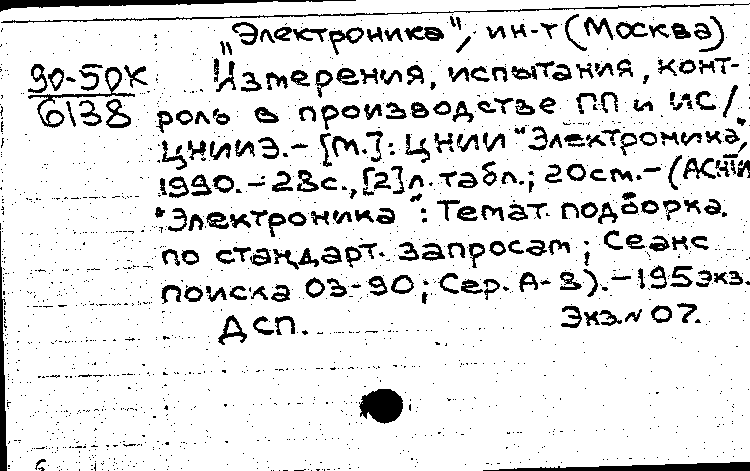 "Электроника", ин-т (Москва)
90-50К
6138
Измерения, испытания, конт-
роль в производстве ПП и ИС /
ЦНИИЭ. - [М.]: ЦНИИ "Электроника",
1990. - 28с., [2]л. табл.; 20см. - (АСНТИ
"Электроника": Темат. подборка.
по стандарт. запросам; Сеанс
поиска 03-90; Сер. А-8). - 195экз.
ДСП.
Экз.№ 07.